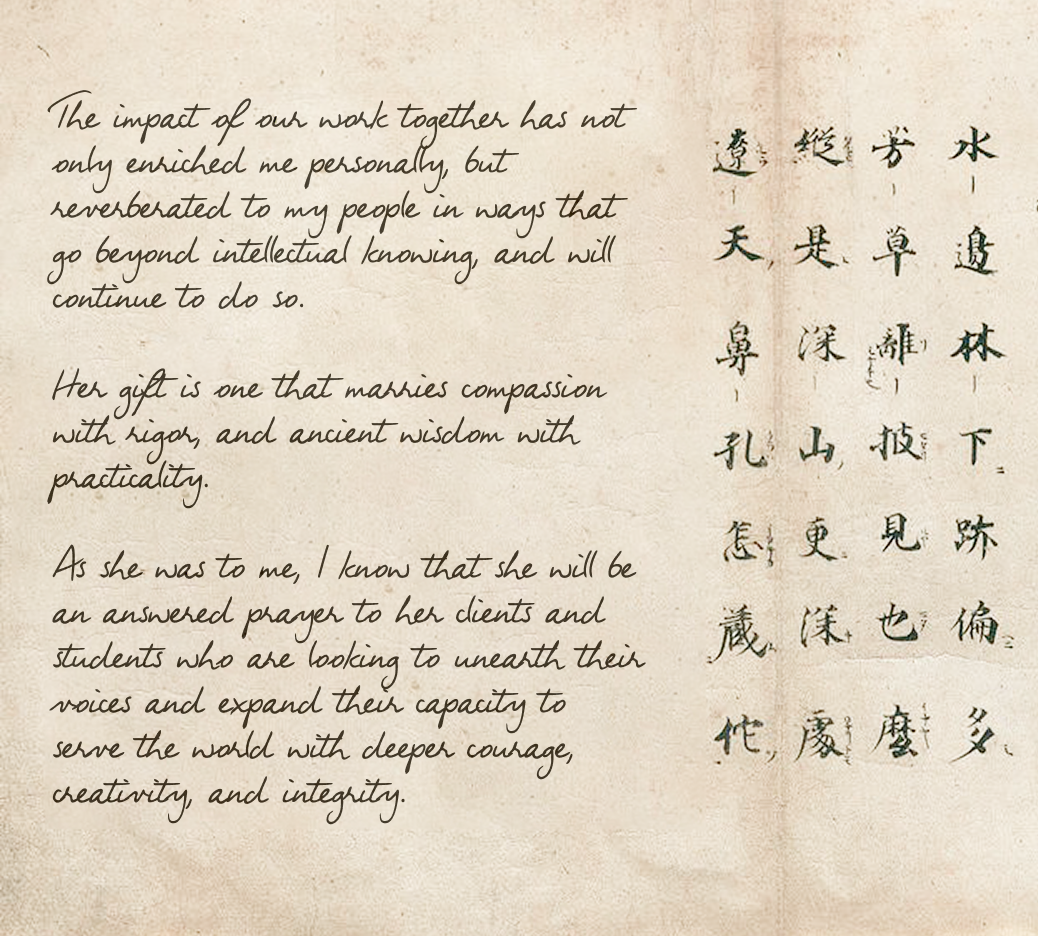 The impact of our work together has not
only enriched me personally, but
reverberated to my people in ways that
go beyond intellectual knowing, and will
continue to do so.
Her gift is one that marries compassion
with rigor, and ancient wisdom with
practicality.
As she was to me, I know that she will be
an answered prayer to her clients and
students who are looking to unearth their
voices and expand their capacity to
serve the world with deeper courage,
creativity, and integrity.
水邉林下跡偏多
芳草離披見也麼
縱是深山更深處
遼天鼻孔怎藏佗